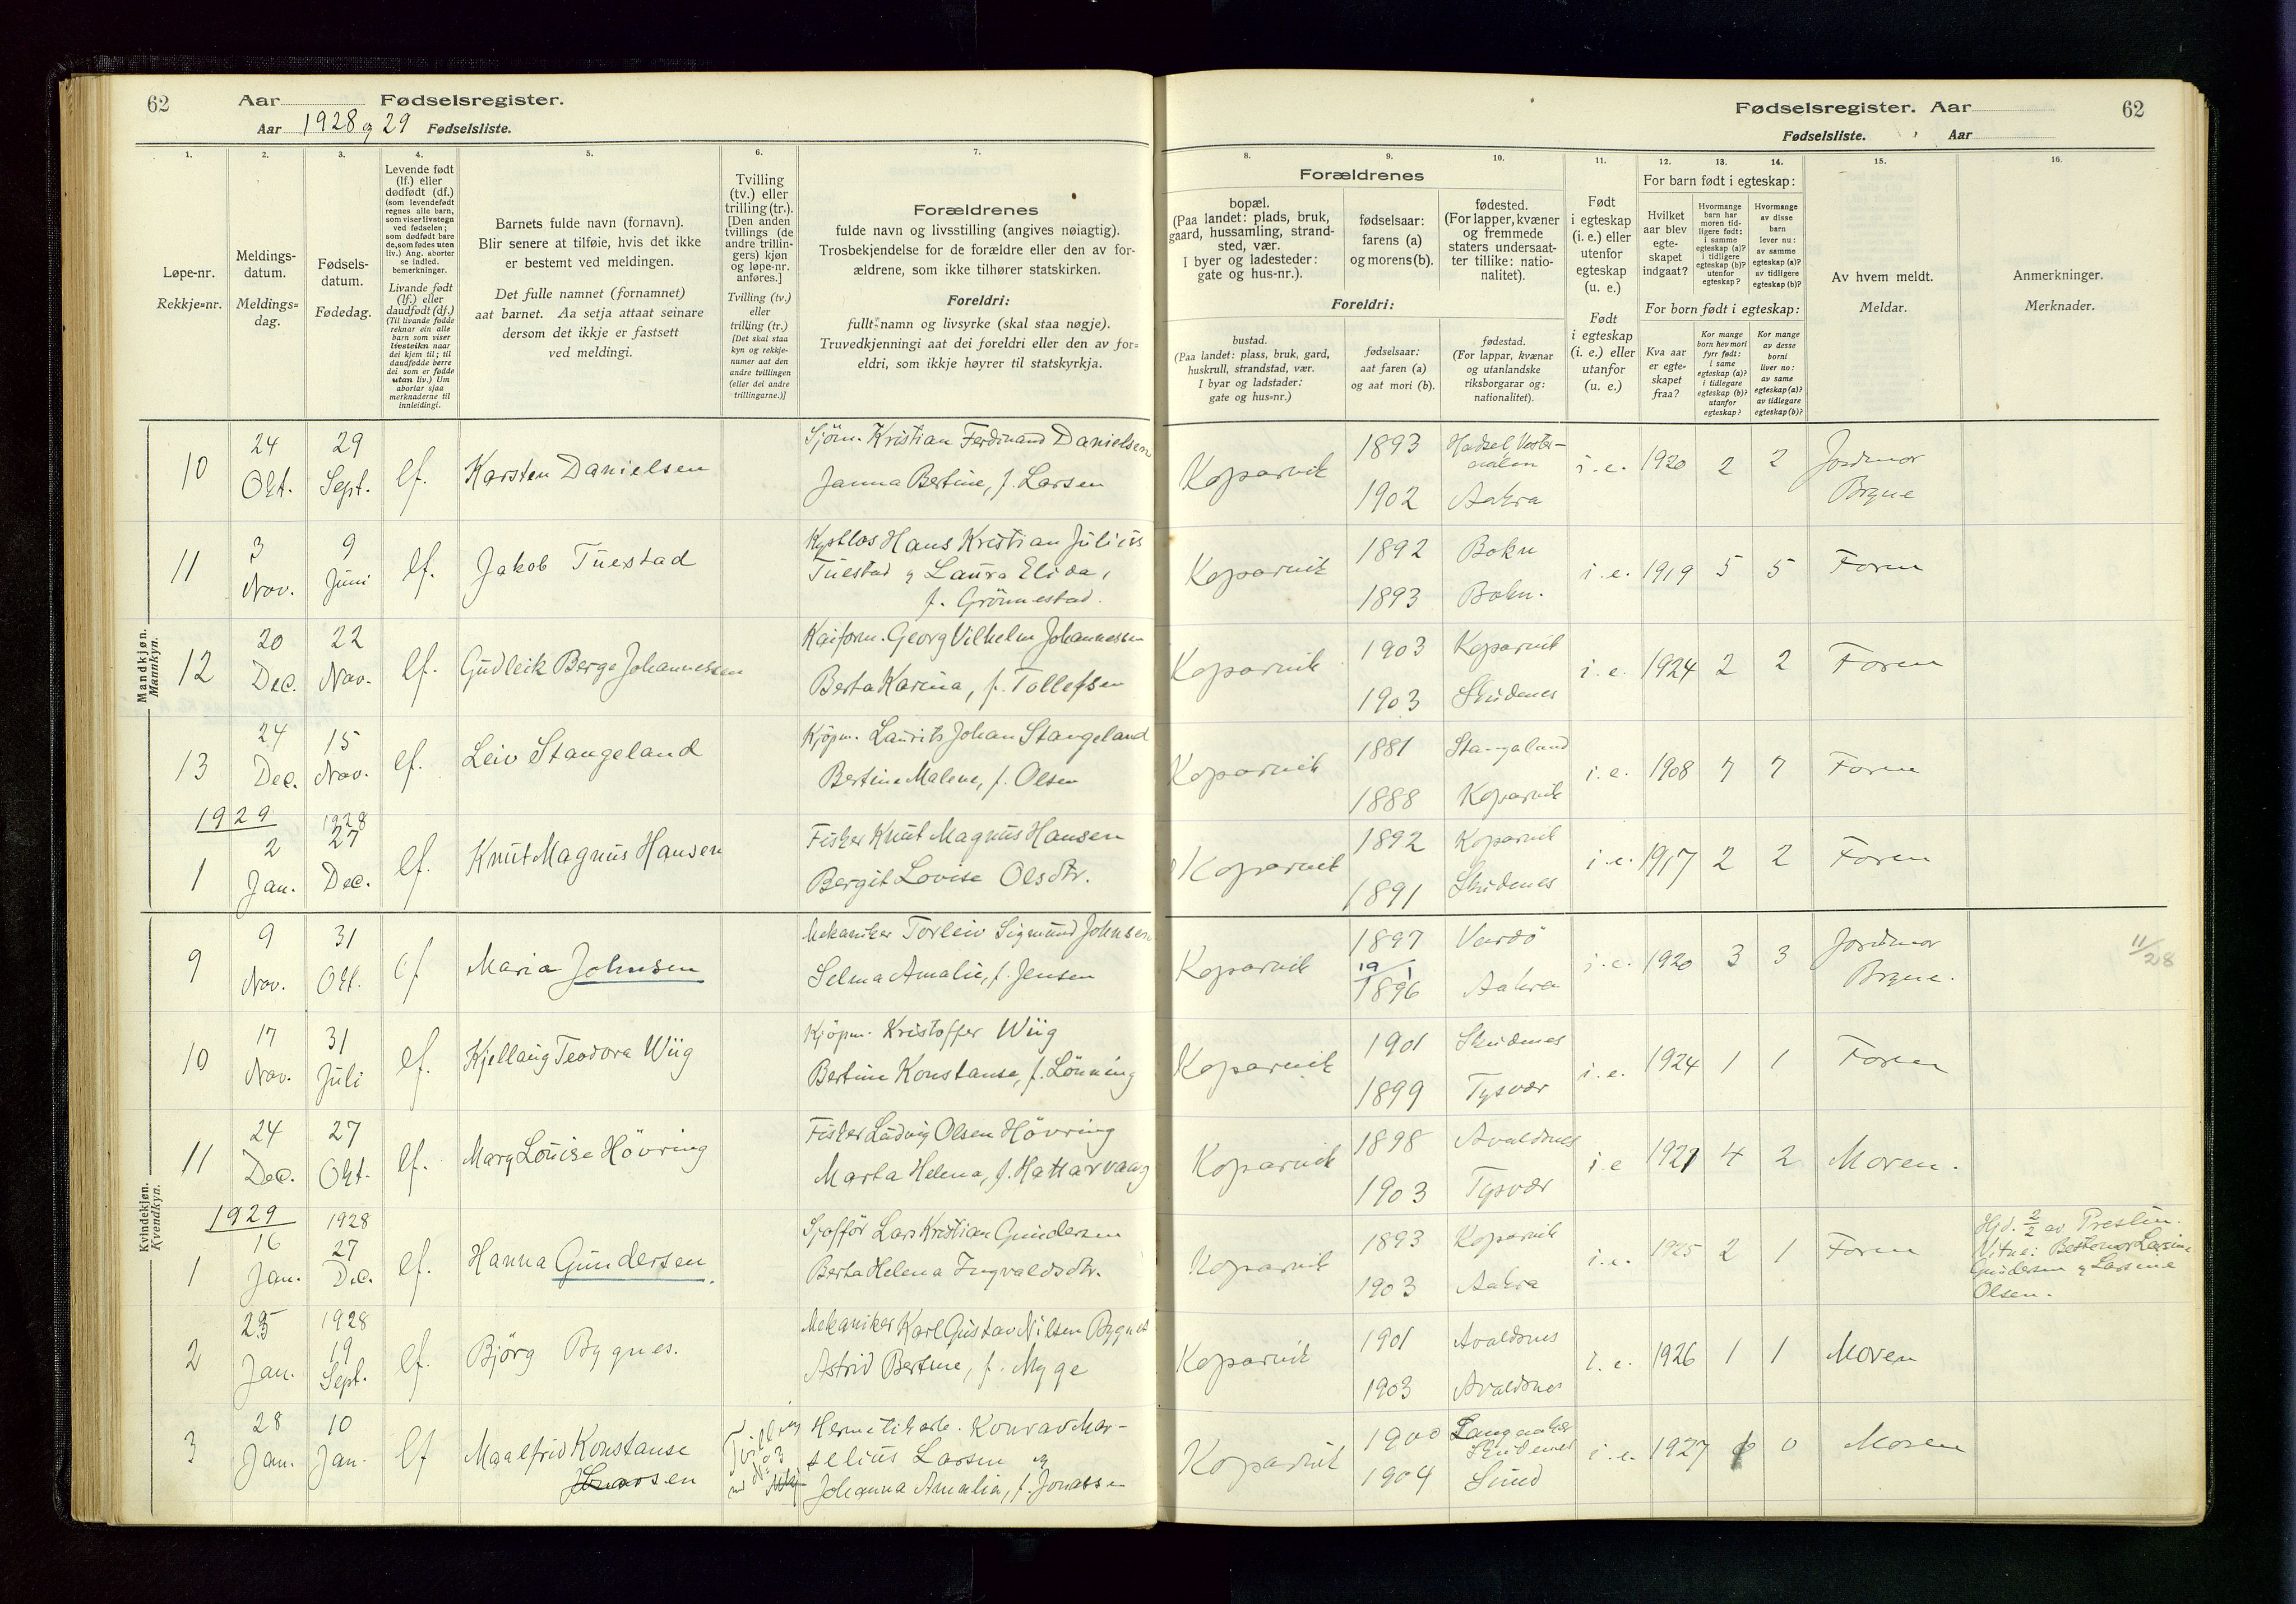 62 Aar Fødselsregister.
Aar 1928 og 29 Fødselsliste.
Fødselsregister. Aar 62
Fødselsliste. Aar
1.
Løpe-nr.
Rekkje-nr.
2.
Meldings-
datum.
Meldings-
dag.
3.
Fødsels-
datum.
Fødedag.
4.
Levende født
(lf.) eller
dødfødt (df.)
(som levendefødt
regnes alle barn,
som viser livstegn
ved fødselen;
som dødfødt bare
de, som fødes uten
liv.) Ang. aborter
se indled.
bemerkninger.
Livande født
(lf.) eller
daudfødt (df.)
(Til livande fødde
reknar ein alle
barn som viser
livsteikn naar
dei kjem til; til
daudfødde berre
dei som er fødde
utan liv.) Um
abortar sjaa
merknaderne til
innleidingi.
5.
Barnets fulde navn (fornavn).
Blir senere at tilføie, hvis det ikke
er bestemt ved meldingen.
Det fulle namnet (fornamnet)
aat barnet. Aa setja attaat seinare
dersom det ikkje er fastsett
ved meldingi.
6.
Tvilling
(tv.) eller
trilling (tr.).
[Den anden
tvillings (de
andre trillin-
gers) kjøn
og løpe-nr.
anføres.]
Tvilling (tv.)
eller
trilling (tr.)
[Det skal staa
kyn og rekkje-
numer aat den
andre tvillingen
(eller dei andre
trillingarne.)]
7.
Forældrenes
fulde navn og livsstilling (angives nøiagtig).
Trosbekjendelse for de forældre eller den av for-
ældrene, som ikke tilhører statskirken.
Foreldri:
fullt namn og livsyrke (skal staa nøgje).
Truvedkjenningi aat dei foreldri eller den av for-
eldri, som ikkje høyrer til statskyrkja.
Forældrenes
8.
bopæl.
(Paa landet: plads, bruk,
gaard, hussamling, strand-
sted, vær.
I byer og ladesteder:
gate og hus-nr.).
Foreldri:
bustad.
(Paa landet: plass, bruk, gard,
huskrull, strandstad, vær.
I byar og ladstader:
gate og hus-nr.)
9.
fødselsaar:
farens (a)
og morens (b).
fødselsaar:
aat faren (a)
og aat mori (b).
10.
fødested.
(For lapper, kvæner
og fremmede
staters undersaat-
ter tillike: natio-
nalitet).
fødestad.
(For lappar, kvænar
og utanlandske
riksborgarar og:
nationalitet).
11.
Født
i egteskap
(i. e.) eller
utenfor
egteskap
(u. e.)
Født
i egteskap
(i. e.) eller
utanfor
(u. e.)
12.
For barn født i egteskap:
Hvilket
aar blev
egte-
skapet
indgaat?
For born født i egteskap:
Kva aar
er egte-
skapet
fraa?
13.
Hvormange
barn har
moren tid-
ligere født:
i samme
egteskap (a)?
i tidligere
egteskap (b)?
utenfor
egteskap?
Kor mange
born hev mori
fyrr født:
i same
egteskap (a)?
i tidlegare
egteskap (b)?
utanfor
egteskap?
14.
Hvormange
av disse
barn
lever nu:
av samme
egteskap (a)?
av tidligere
egteskap (b)?
Kor mange
av desse
borni
liver no:
av same
egteskap (a)?
av tidlegare
egteskap (b)?
15.
Av hvem meldt.
Meldar.
16.
Anmerkninger.
Merknader.
Mandkjøn.
Mannkyn.
10 24 Okt. 29 Sept. lf. Karsten Danielsen
Sjöm. Kristian Ferdinand Danielsen
Janna Bertine, f. Larsen
Kopervik 1893 Hadsel, Vester-
aalen
1902 Aakra
i. e. 1920 2 2 Jordmor
Brgne
11 3 Nov. 9 Juni lf. Jakob Tuestad
Hans Kristian Julius
Tuestad og Laura Elida,
f. Grönnestad.
Kopervik 1892 Bokn
1893 Bokn.
i. e. 1919 5 5 Faren
12 20 Dec. 22 Nov. lf. Gudleik Berge Johannessen
Kaiform. Georg Vilhelm Johannessen
Berta Karina, f. Tollefsen
Kopervik 1903 Kopervik
1903 Skudenes
i. e. 1924 2 2 Faren
13 24 Dec. 15 Nov. lf. Leiv Stangeland
Kjöpm. Laurits Johan Stangeland
Bertine Malene, f. Olsen
Kopervik 1881 Stangaland
1888 Kopervik
i. e. 1908 7 7 Faren
1929 1928
1 2 Jan. 27 Dec. lf. Knut Magnus Hansen
Fisker Knut Magnus Hansen
Bergit Lovise Olsdtr.
Kopervik 1892 Kopervik
1891 Skudenes
i. e. 1917 2 2 Faren
Kvindekjøn.
Kvendkyn.
9 9 Nov. 31 Okt. lf Maria Johnsen
Mekaniker Torleiv Sigmund Johnsen
Selma Amalie, f. Jensen
Kopervik 1897 Vardö
19/1
1896 Aakra
i. e. 1920 3 3 Jordmor
Brgne.
11/28
10 17 Nov. 31 Juli lf. Kjellaug Teodora Wiig
Kjöpm. Kristoffer Wiig
Bertine Konstanse, f. Lönning
Kopervik 1901 Skudenes
1899 Tysvær
i. e. 1924 1 1 Faren
11 24 Dec. 27 Okt. lf. Mary Louise Hövring
Fisker Ludvig Olsen Hövring
Marta Helena, f. Hattarvaag
Kopervik 1898 Avaldsnes
1903 Tysvær
i. e 1921 4 2 Moren.
1929 1928
1 16 Jan. 27 Dec. lf. Hanna Gundersen.
Sjofför Lars Kristian Gundersen
Berta Helena Ingvaldsdtr.
Kopervik 1893 Kopervik
1903 Aakra
i. e. 1925 2 1 Faren
Hjd. 2/2 av Presten.
Vitne: Bestemor Larine
Gundersen og Larsine
Olsen.
2 25 Jan. 1928 19 Sept. lf. Björg Bygnes.
Mekaniker Karl Gustav Nilsen Bygnes
Astrid Bertine, f. Mygge
Kopervik 1901 Avaldsnes
1903 Avaldsnes
i. e. 1926 1 1 Moren
3 28 Jan. 10 Jan. lf Maalfrid Konstanse
Larsen
Tvilling
Hermetikarb. Konrad Mar-
selius Larsen og
Johanna Amalia, f. Jonassen
Kopervik 1900 Langaaker
Skudenes
1904 Sund
i. e. 1927 0 0 Moren